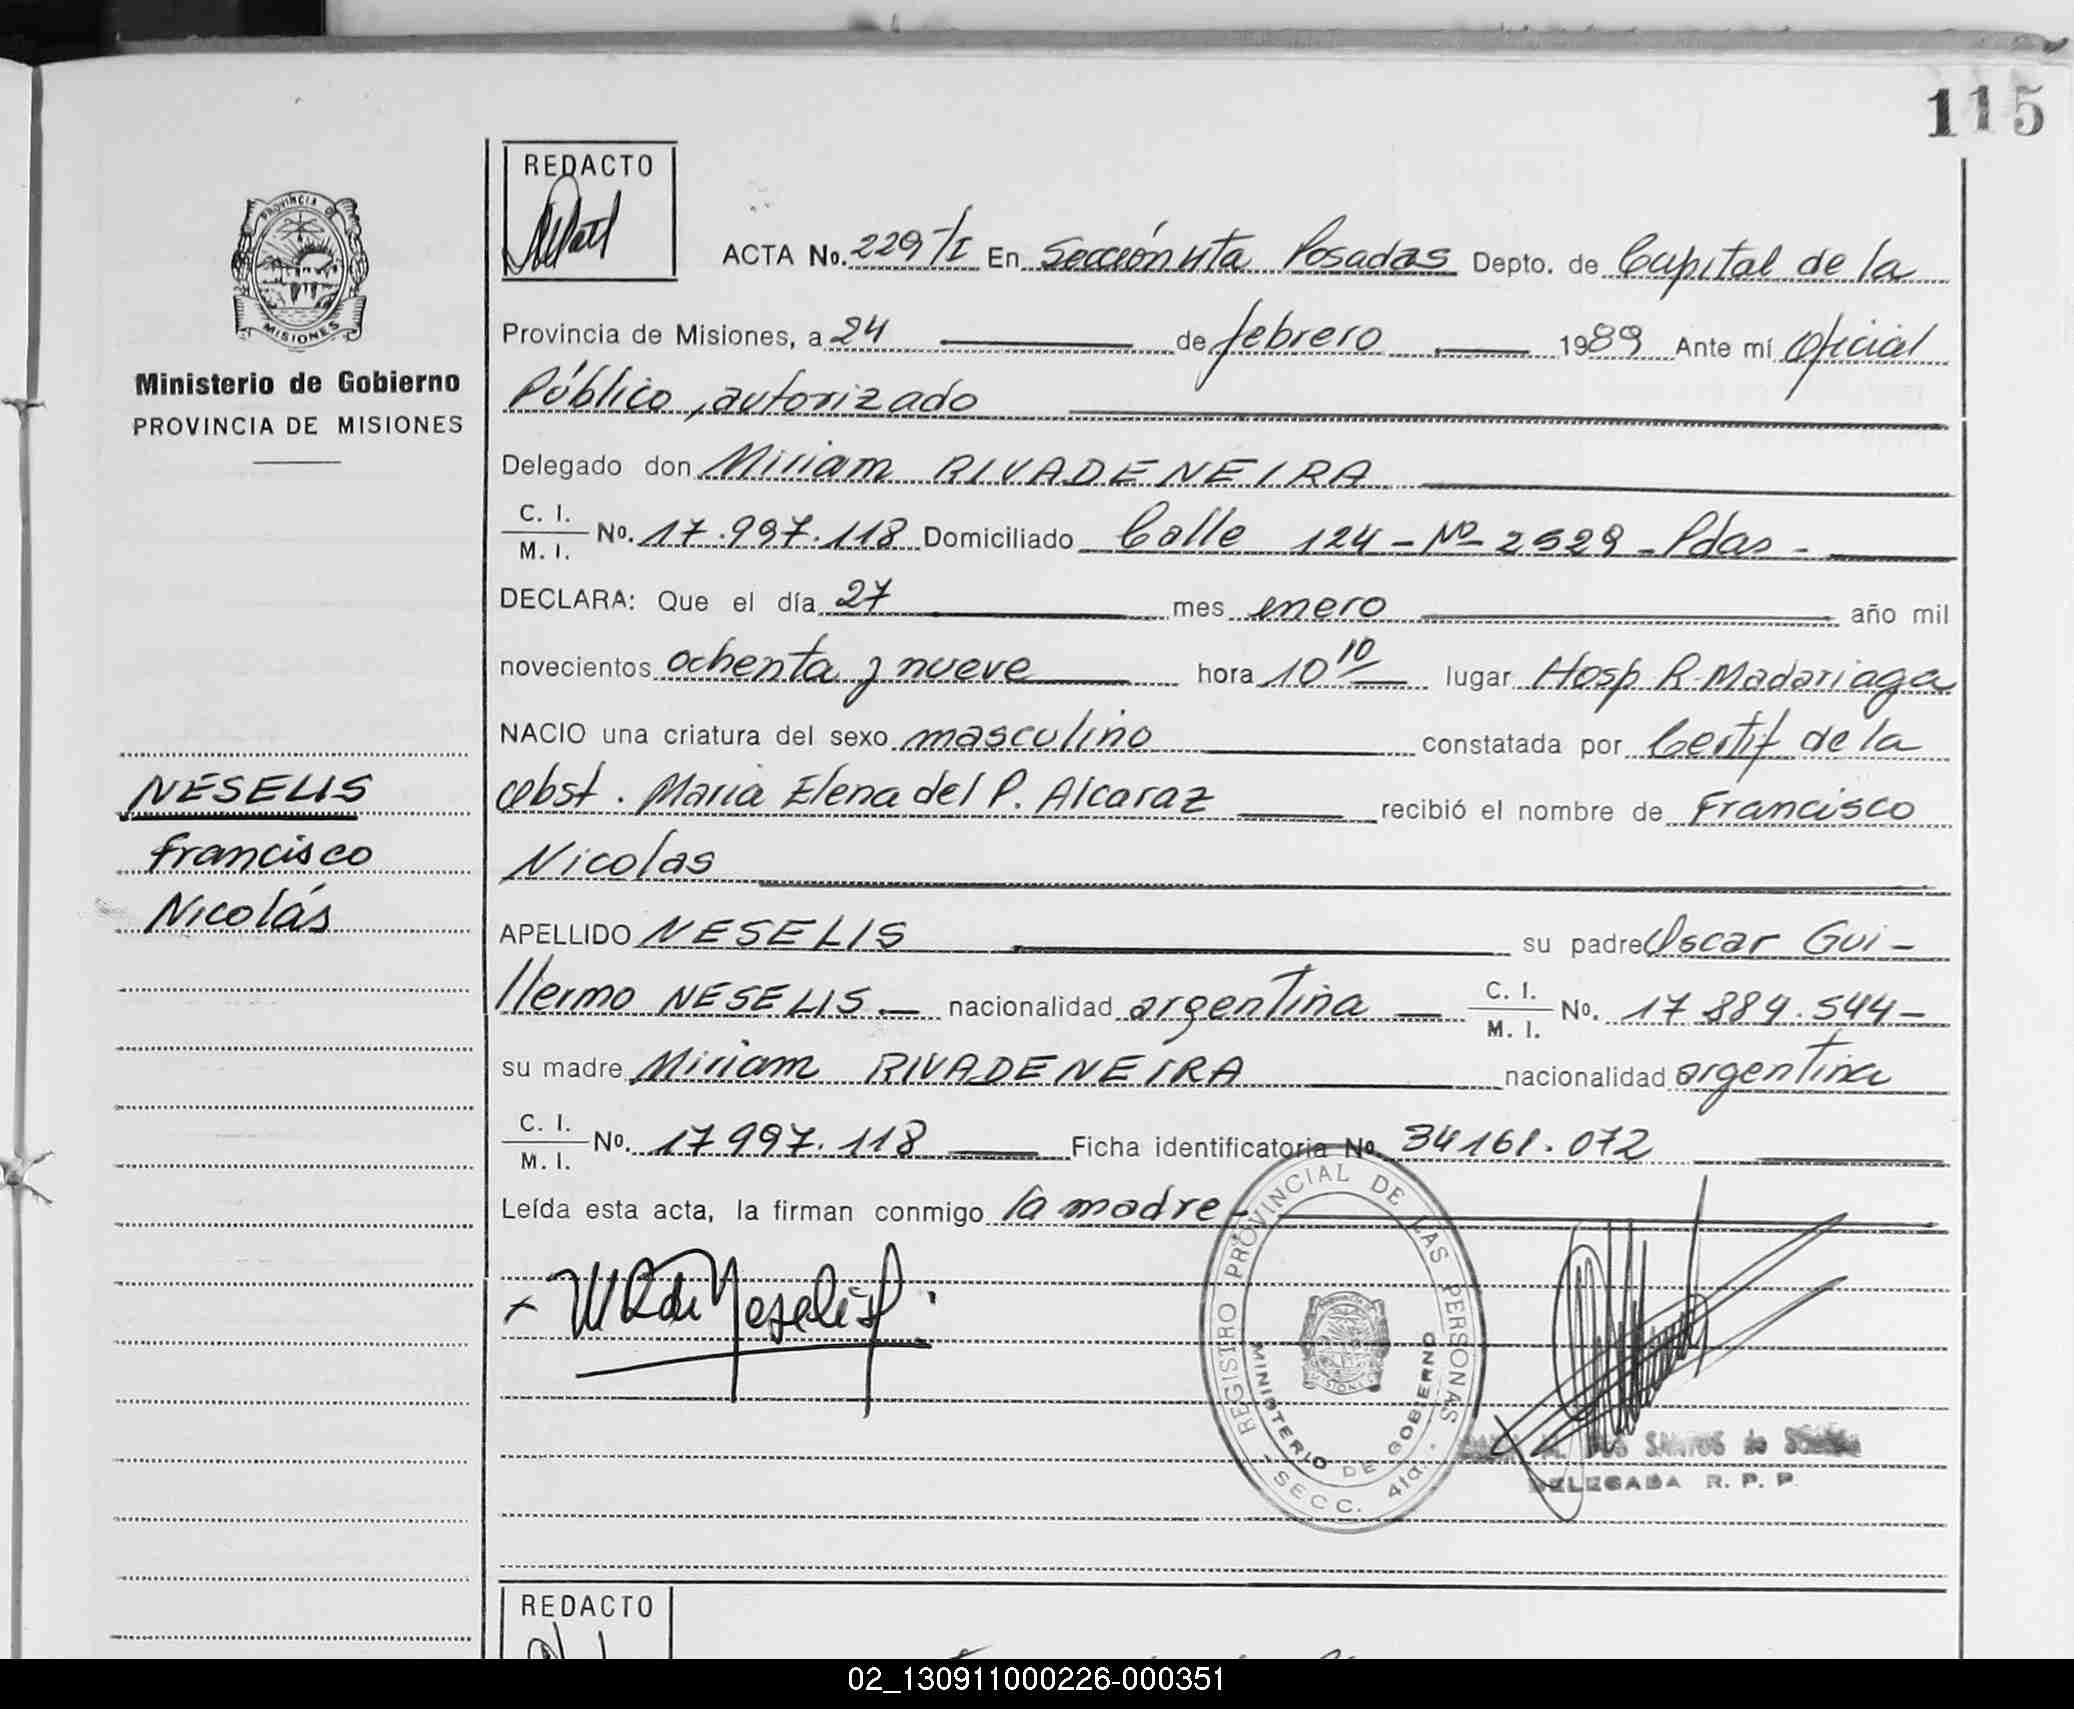 115
REDACTO
ACTA No. 229/I En Sección 4ta Posadas Depto. de Capital de la
Provincia de Misiones, a 24 de febrero 1989 Ante mí Oficial
Público, autorizado
Delegado don Miriam RIVADENEIRA
C. I.
M. I. No. 17.997.118 Domiciliado Calle 124 - No 2529 - Pdas -
DECLARA: Que el día 27 mes enero año mil
novecientos ochenta y nueve hora 10 10 lugar Hosp R. Madariaga
NACIO una criatura del sexo masculino constatada por Certif de la
obst. Maria Elena del P. Alcaraz recibió el nombre de Francisco
Nicolas
APELLIDO NESELIS su padre Oscar Gui-
llermo NESELIS - nacionalidad argentina - C. I. M. I. No. 17 884.544-
su madre Miriam RIVADENEIRA nacionalidad argentina
C. I.
M. I. No. 17 997.118 Ficha identificatoria No. 34161.072
Leída esta acta, la firman conmigo la madre -
PROVINCIA DE
MISIONES
Ministerio de Gobierno
PROVINCIA DE MISIONES
NESELIS
Francisco
Nicolás
REGISTRO PROVINCIAL DE LAS PERSONAS
MINISTERIO DE GOBIERNO
SECC. 4ta.
MISIONES
SANTOS de
DELEGADA R. P. P.
REDACTO
02_130911000226-000351